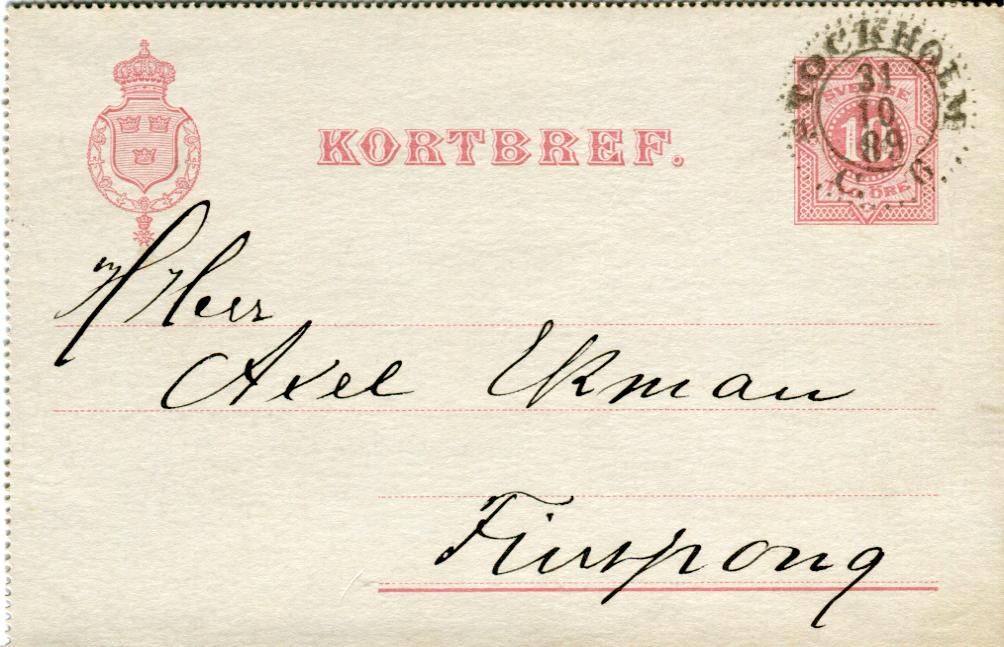 KORTBREF.
STOCKHOLM
31
10
89
C. 6
SVERIGE
10
ÖRE
H Herr
Axel Ekman
Finspong